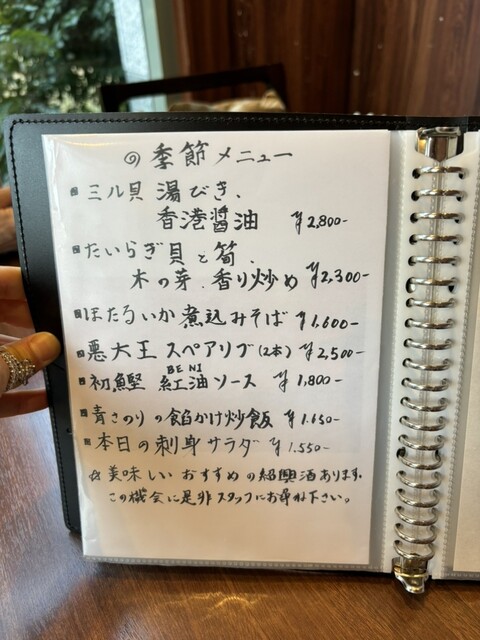 ◎季節メニュー
ミル貝 湯びき、
香港醤油 ¥2,800-
たいらぎ貝と筍、
木の芽、香り炒め ¥2,300-
ほたるいか煮込みそば ¥1,600-
悪大王 スペアリブ(2本) ¥2,500-
BENI
初鰹 紅油ソース ¥1,800-
青さのりの餡かけ炒飯 ¥1.650-
本日の刺身サラダ ¥1.550-
☆美味しいおすすめの紹興酒あります。
この機会に是非スタッフにお尋ね下さい。